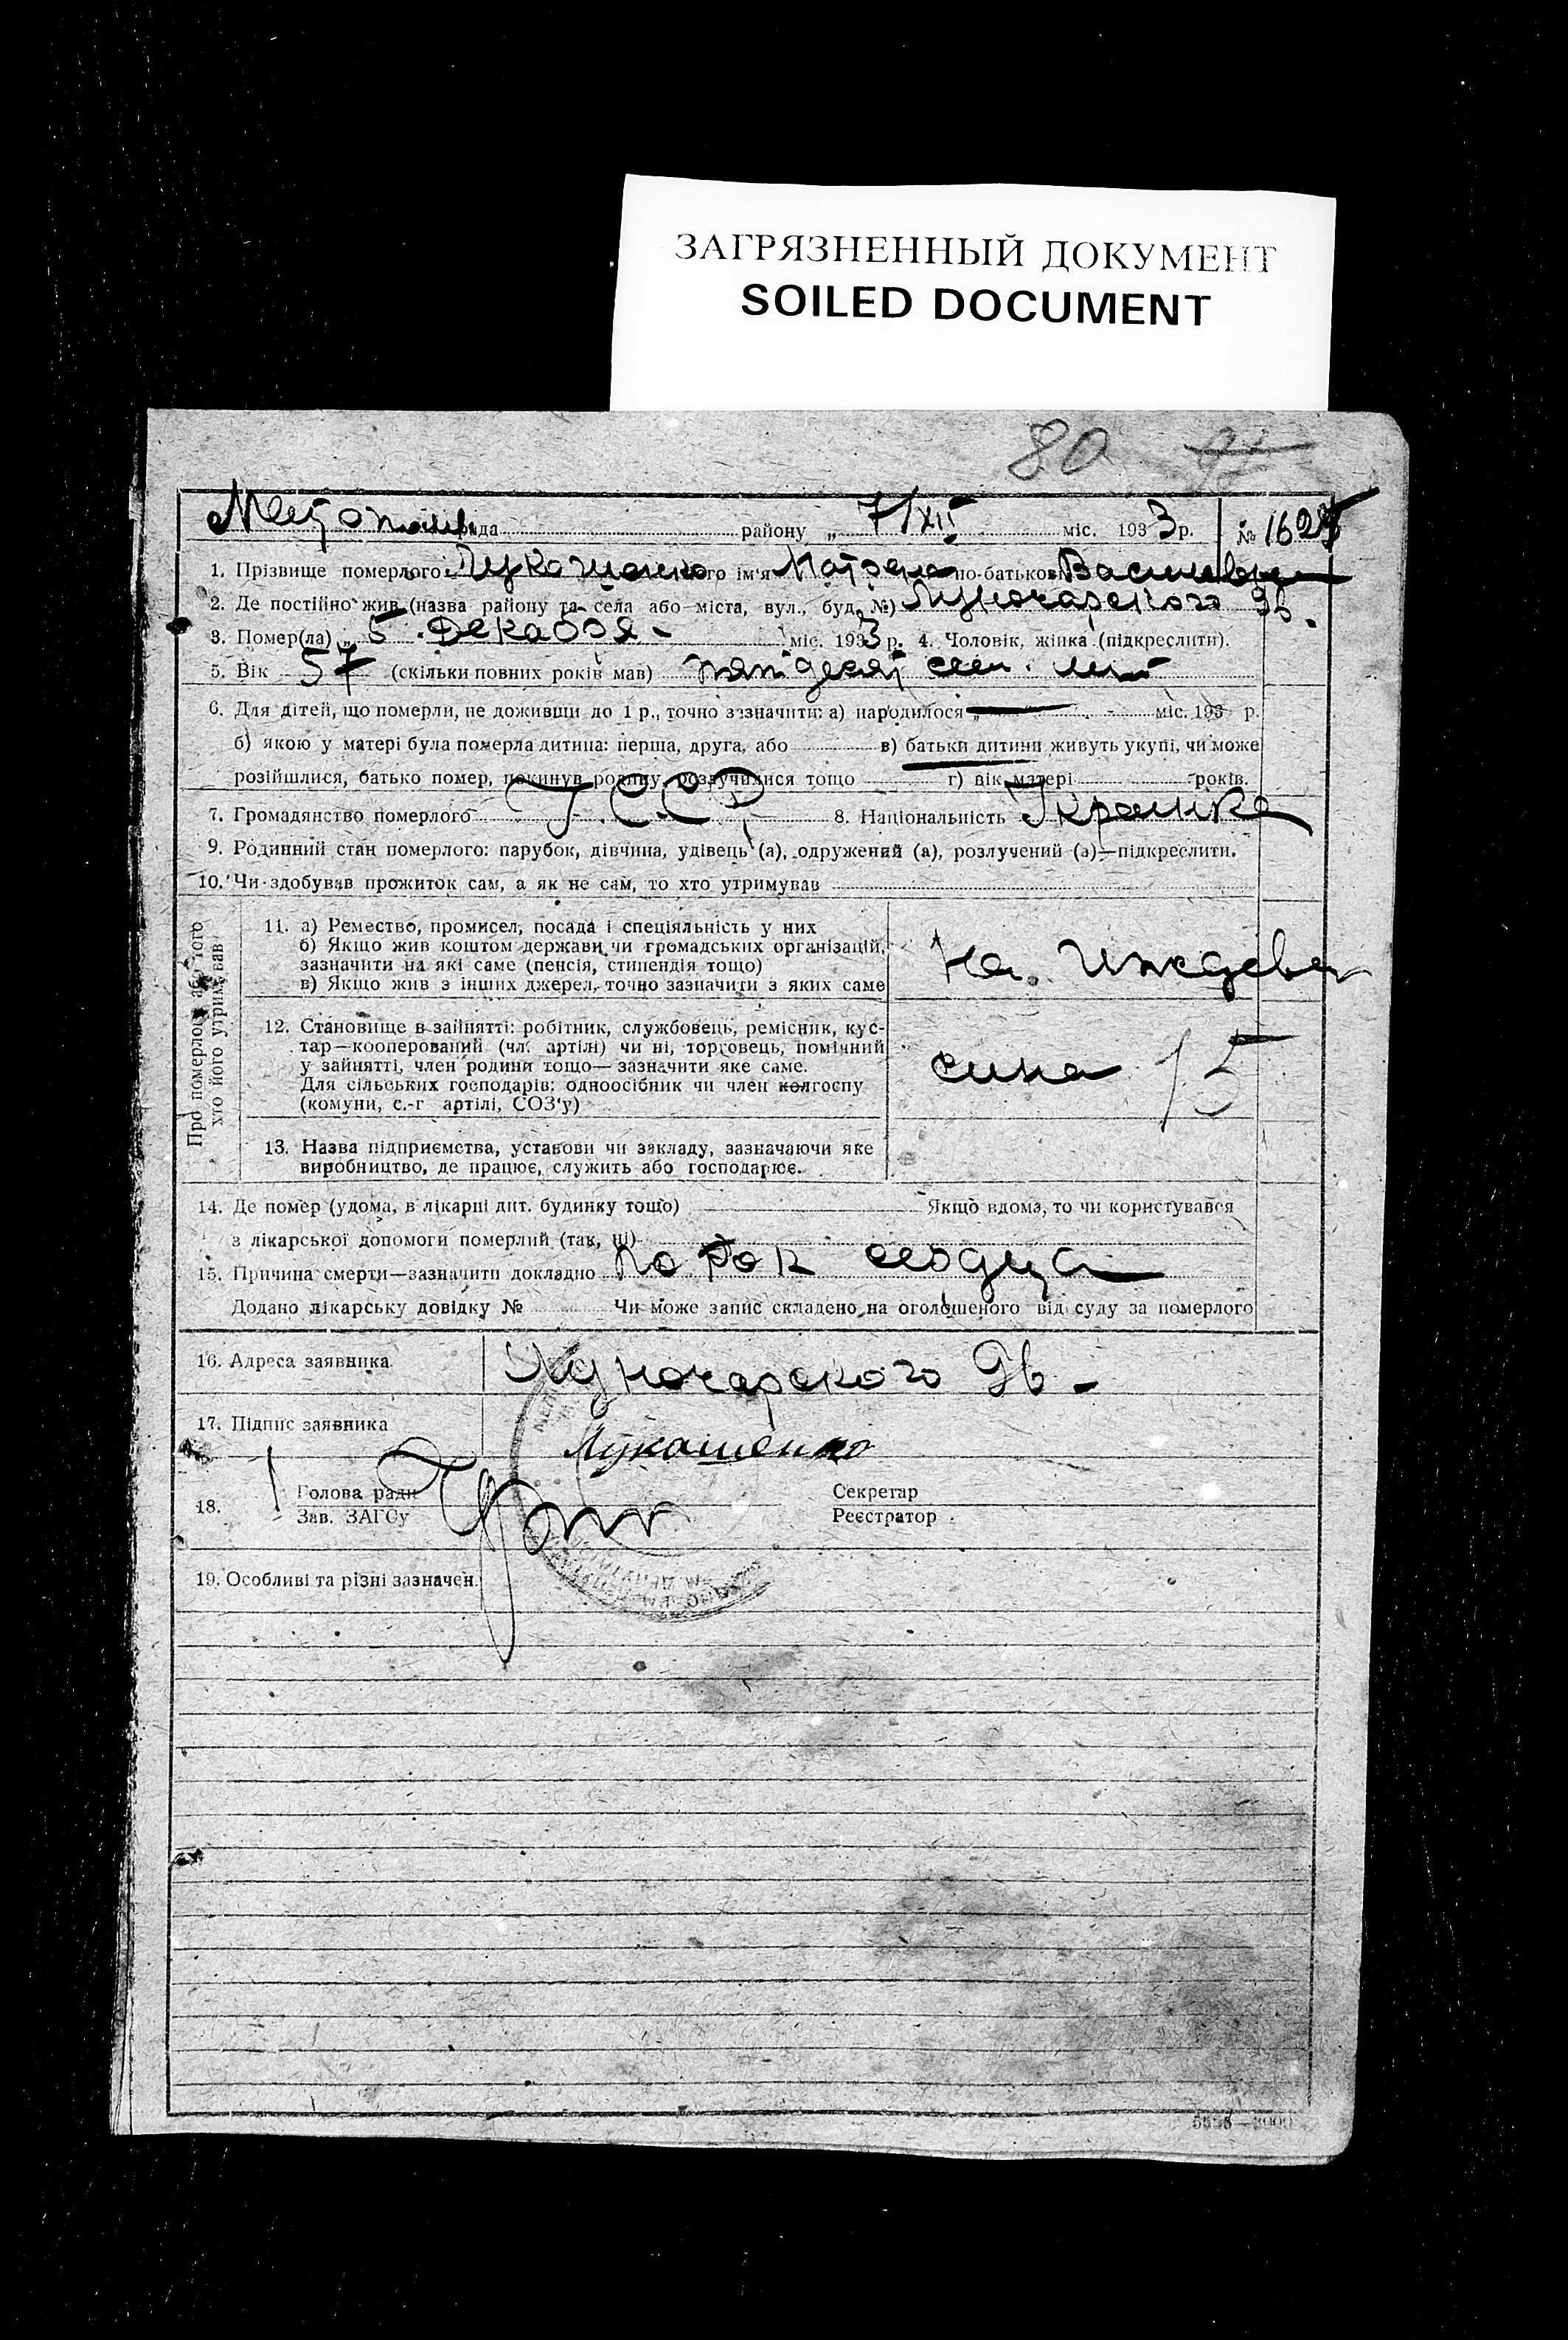 ЗАГРЯЗНЕННЫЙ ДОКУМЕНТ
SOILED DOCUMENT
80
рада району „ 7/XII міс. 1933 р. № 162
1. Прізвище померлого Лукашенко його ім'я Матрена по-батькові Васильевна
2. Де постійно жив (назва району та села або міста, вул., буд. №) Луночарского 9б.
3. Помер(ла) „ 5 Декабря - міс. 1933 р. 4. Чоловік, жінка (підкреслити).
5. Вік 57 (скільки повних років мав) пятдесят сем лет
6. Для дітей, що померли, не доживши до 1 р., точно зазначити: а) народилося „ міс. 193 р.
б) якою у матері була померла дитина: перша, друга, або в) батьки дитини живуть укупі, чи може
розійшлися, батько помер, покинув родину, розлучилися тощо г) вік матері років.
7. Громадянство померлого УССР 8. Національність Украинка
9. Родинний стан померлого: парубок, дівчина, удівець (а), одружений (а), розлучений (а)—підкреслити.
10. Чи здобував прожиток сам, а як не сам, то хто утримував
Про померлого або того хто його утримував
11. а) Ремество, промисел, посада і спеціяльність у них
б) Якщо жив коштом держави чи громадських організацій,
зазначити на які саме (пенсія, стипендія тощо)
в) Якщо жив з інших джерел, точно зазначити з яких саме
На иждевен
12. Становище в зайнятті: робітник, службовець, ремісник, кус-
тар—кооперований (чл. артілі) чи ні, торговець, помічний
у зайнятті, член родини тощо—зазначити яке саме.
Для сільських господарів: одноосібник чи член колгоспу
(комуни, с.-г артілі, СОЗ'у)
сина 15
13. Назва підприємства, установи чи закладу, зазначаючи яке
виробництво, де працює, служить або господарює.
14. Де помер (удома, в лікарні дит. будинку тощо) Якщо вдома, то чи користувався
з лікарської допомоги померлий (так, ні)
15. Причина смерти—зазначити докладно Порок сердца
Додано лікарську довідку № Чи може запис складено на оголошеного від суду за померлого
16. Адреса заявника Луночарского 9б -
17. Підпис заявника Лукашенко
18. Голова ради Секретар
Зав. ЗАГСу Реєстратор
19. Особливі та різні зазначен.